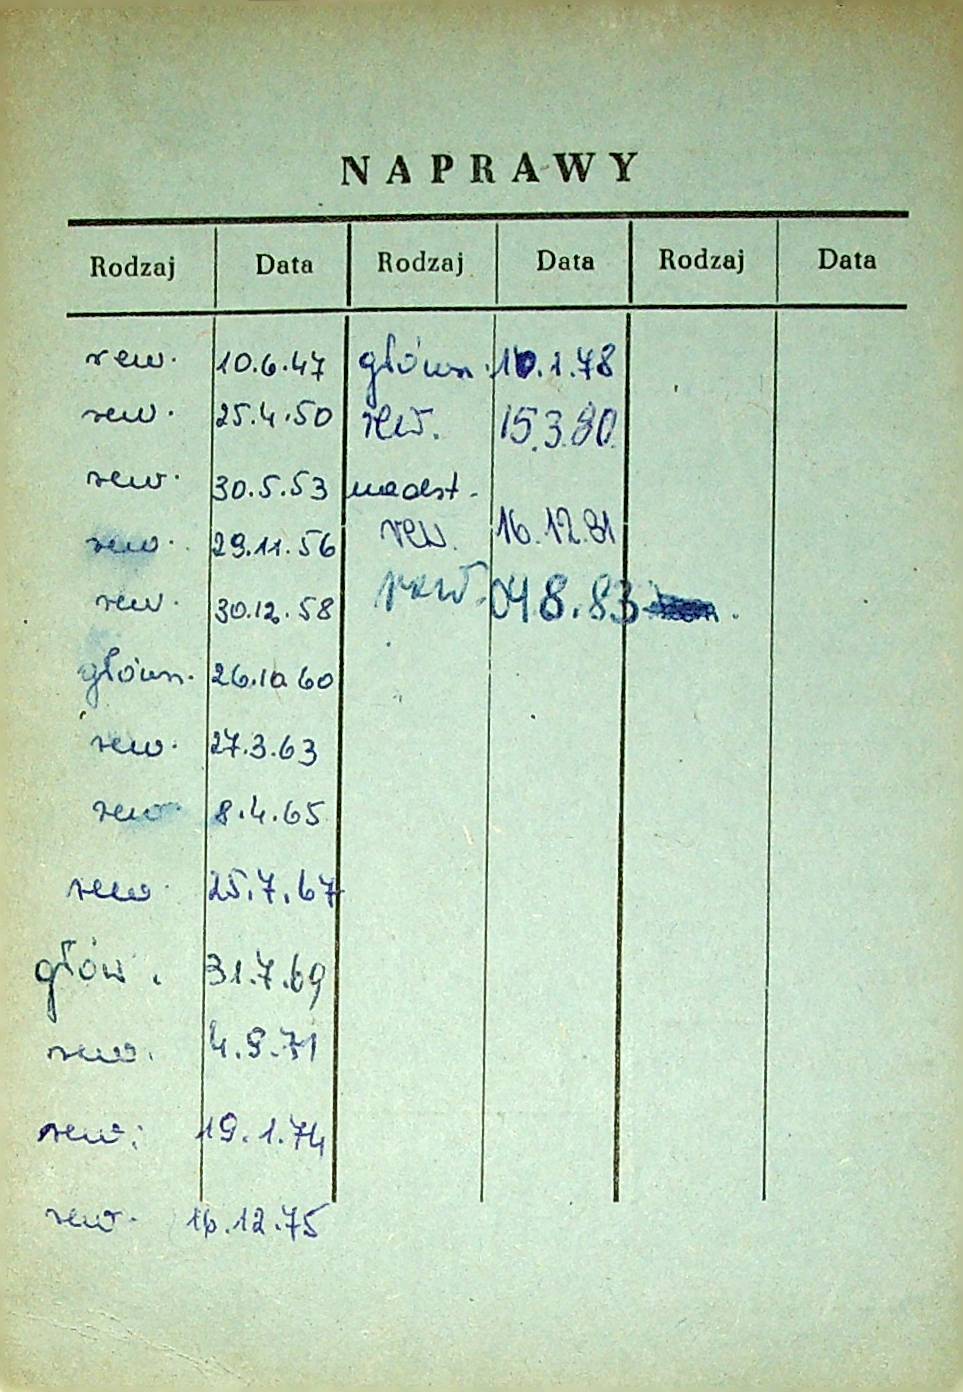 NAPRAWY
Rodzaj Data Rodzaj Data Rodzaj Data
rew. 10.6.47 główn. 10.1.78
rew. 25.4.50 rew. 15.3.80
rew. 30.5.53 nadst.
rew. 29.11.56 rew. 16.12.81
rew. 30.12.58 rew. 04 8.83
główn. 26.10 60
rew. 27.3.63
rew. 8.4.65
rew. 25.7.67
głów. 31.7.69
rew. 4.9.71
rew. 19.1.74
rew. 16.12.75